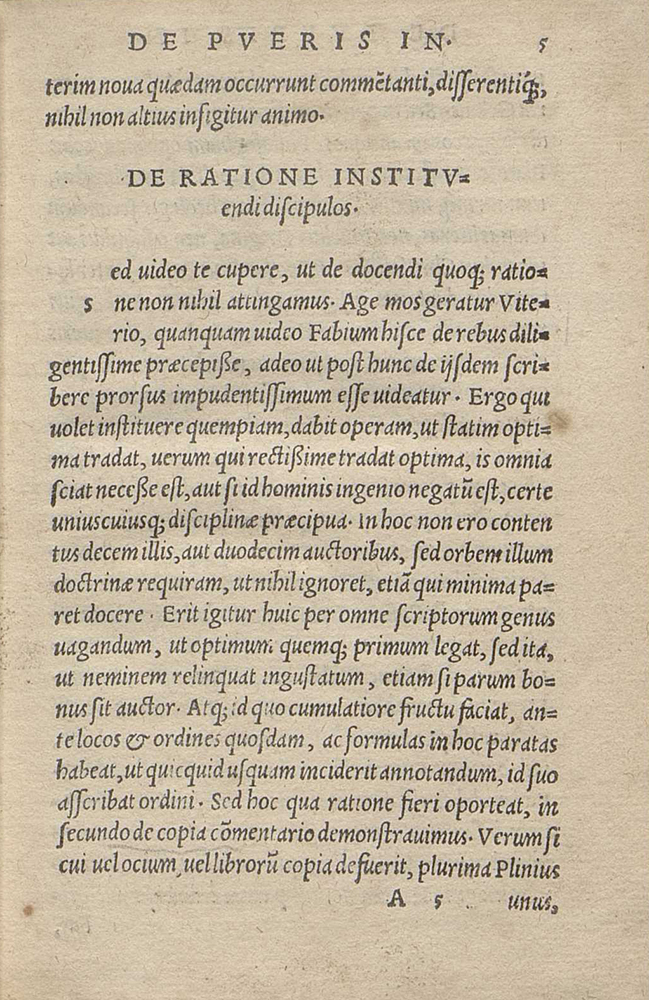 DE PVERIS IN. 5
terim noua quædam occurrunt commẽtanti, disserentiq́ꝫ,
nihil non altius insigitur animo.
DE RATIONE INSTITV=
endi discipulos.
ed uideo te cupere, ut de docendi quoqꝫ ratio=
s ne non nihil attingamus. Age mos geratur Vite=
rio, quanquam uideo Fabium hisce de rebus dili=
gentissime præcepiße, adeo ut post hunc de ijsdem scri=
bere prorsus impudentissimum esse uideatur. Ergo qui
uolet instituere quempiam, dabit operam, ut statim opti=
ma tradat, uerum qui rectißime tradat optima, is omnia
sciat neceße est, aut si id hominis ingenio negatũ est, certe
uniuscuiusqꝫ disciplinæ præcipua. In hoc non ero conten
tus decem illis, aut duodecim auctoribus, sed orbem illum
doctrinæ requiram, ut nihil ignoret, etiã qui minima pa=
ret docere. Erit igitur huic per omne scriptorum genus
uagandum, ut optimum quemqꝫ primum legat, sed ita,
ut neminem relinquat ingustatum, etiam si parum bo=
nus sit auctor. Atqꝫ id quo cumulatiore fructu faciat, an=
te locos & ordines quosdam, ac formulas in hoc paratas
habeat, ut quicquid usquam inciderit annotandum, id suo
asscribat ordini. Sed hoc qua ratione fieri oporteat, in
secundo de copia cõmentario demonstrauimus. Verum si
cui uel ocium, uel librorũ copia defuerit, plurima Plinius
A 5 unus,